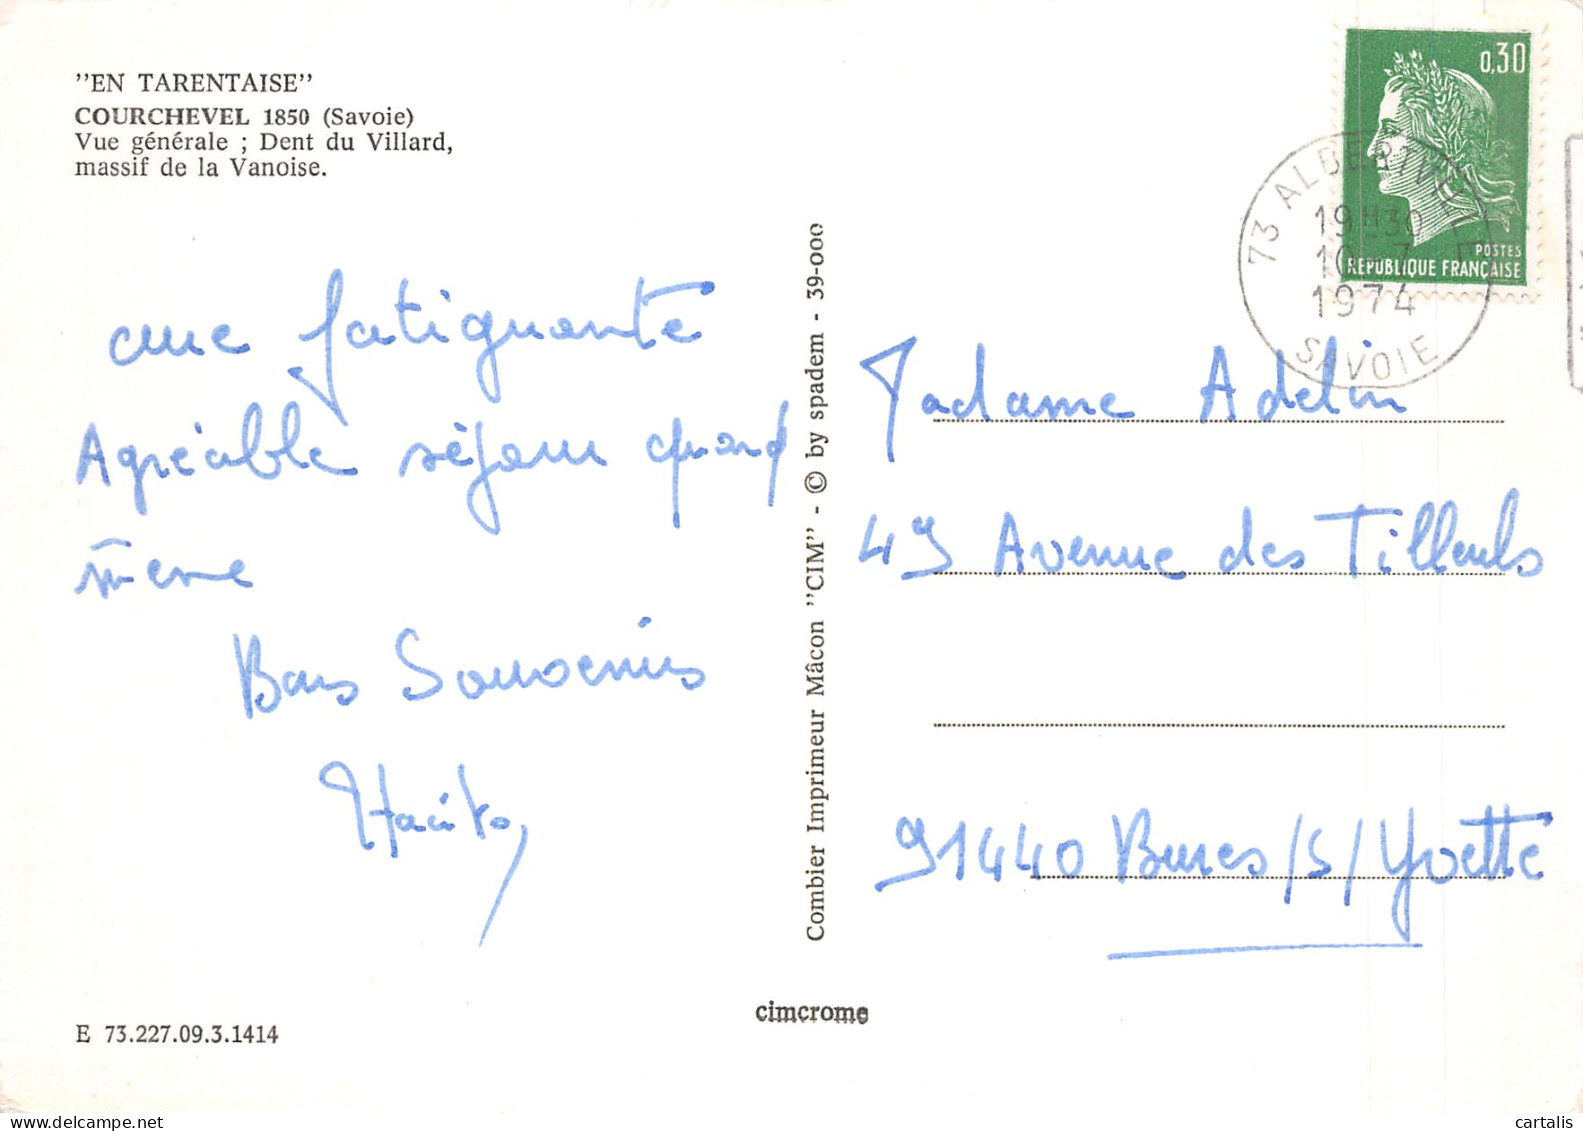 "EN TARENTAISE"
COURCHEVEL 1850 (Savoie)
Vue générale ; Dent du Villard,
massif de la Vanoise.
fatiguante
Agréable séjour quand
même
Bons Souvenirs
E 73.227.09.3.1414
Combier Imprimeur Mâcon "CIM" - © by spadem - 39-000
cimcrome
0,30
POSTES
REPUBLIQUE FRANÇAISE
73 ALBERTVILLE
19H30
10 - 7
1974
SAVOIE
Madame Adelin
49 Avenue des Tilleuls
91440 Bures/s/Yvette
cartalis
delcampe.net